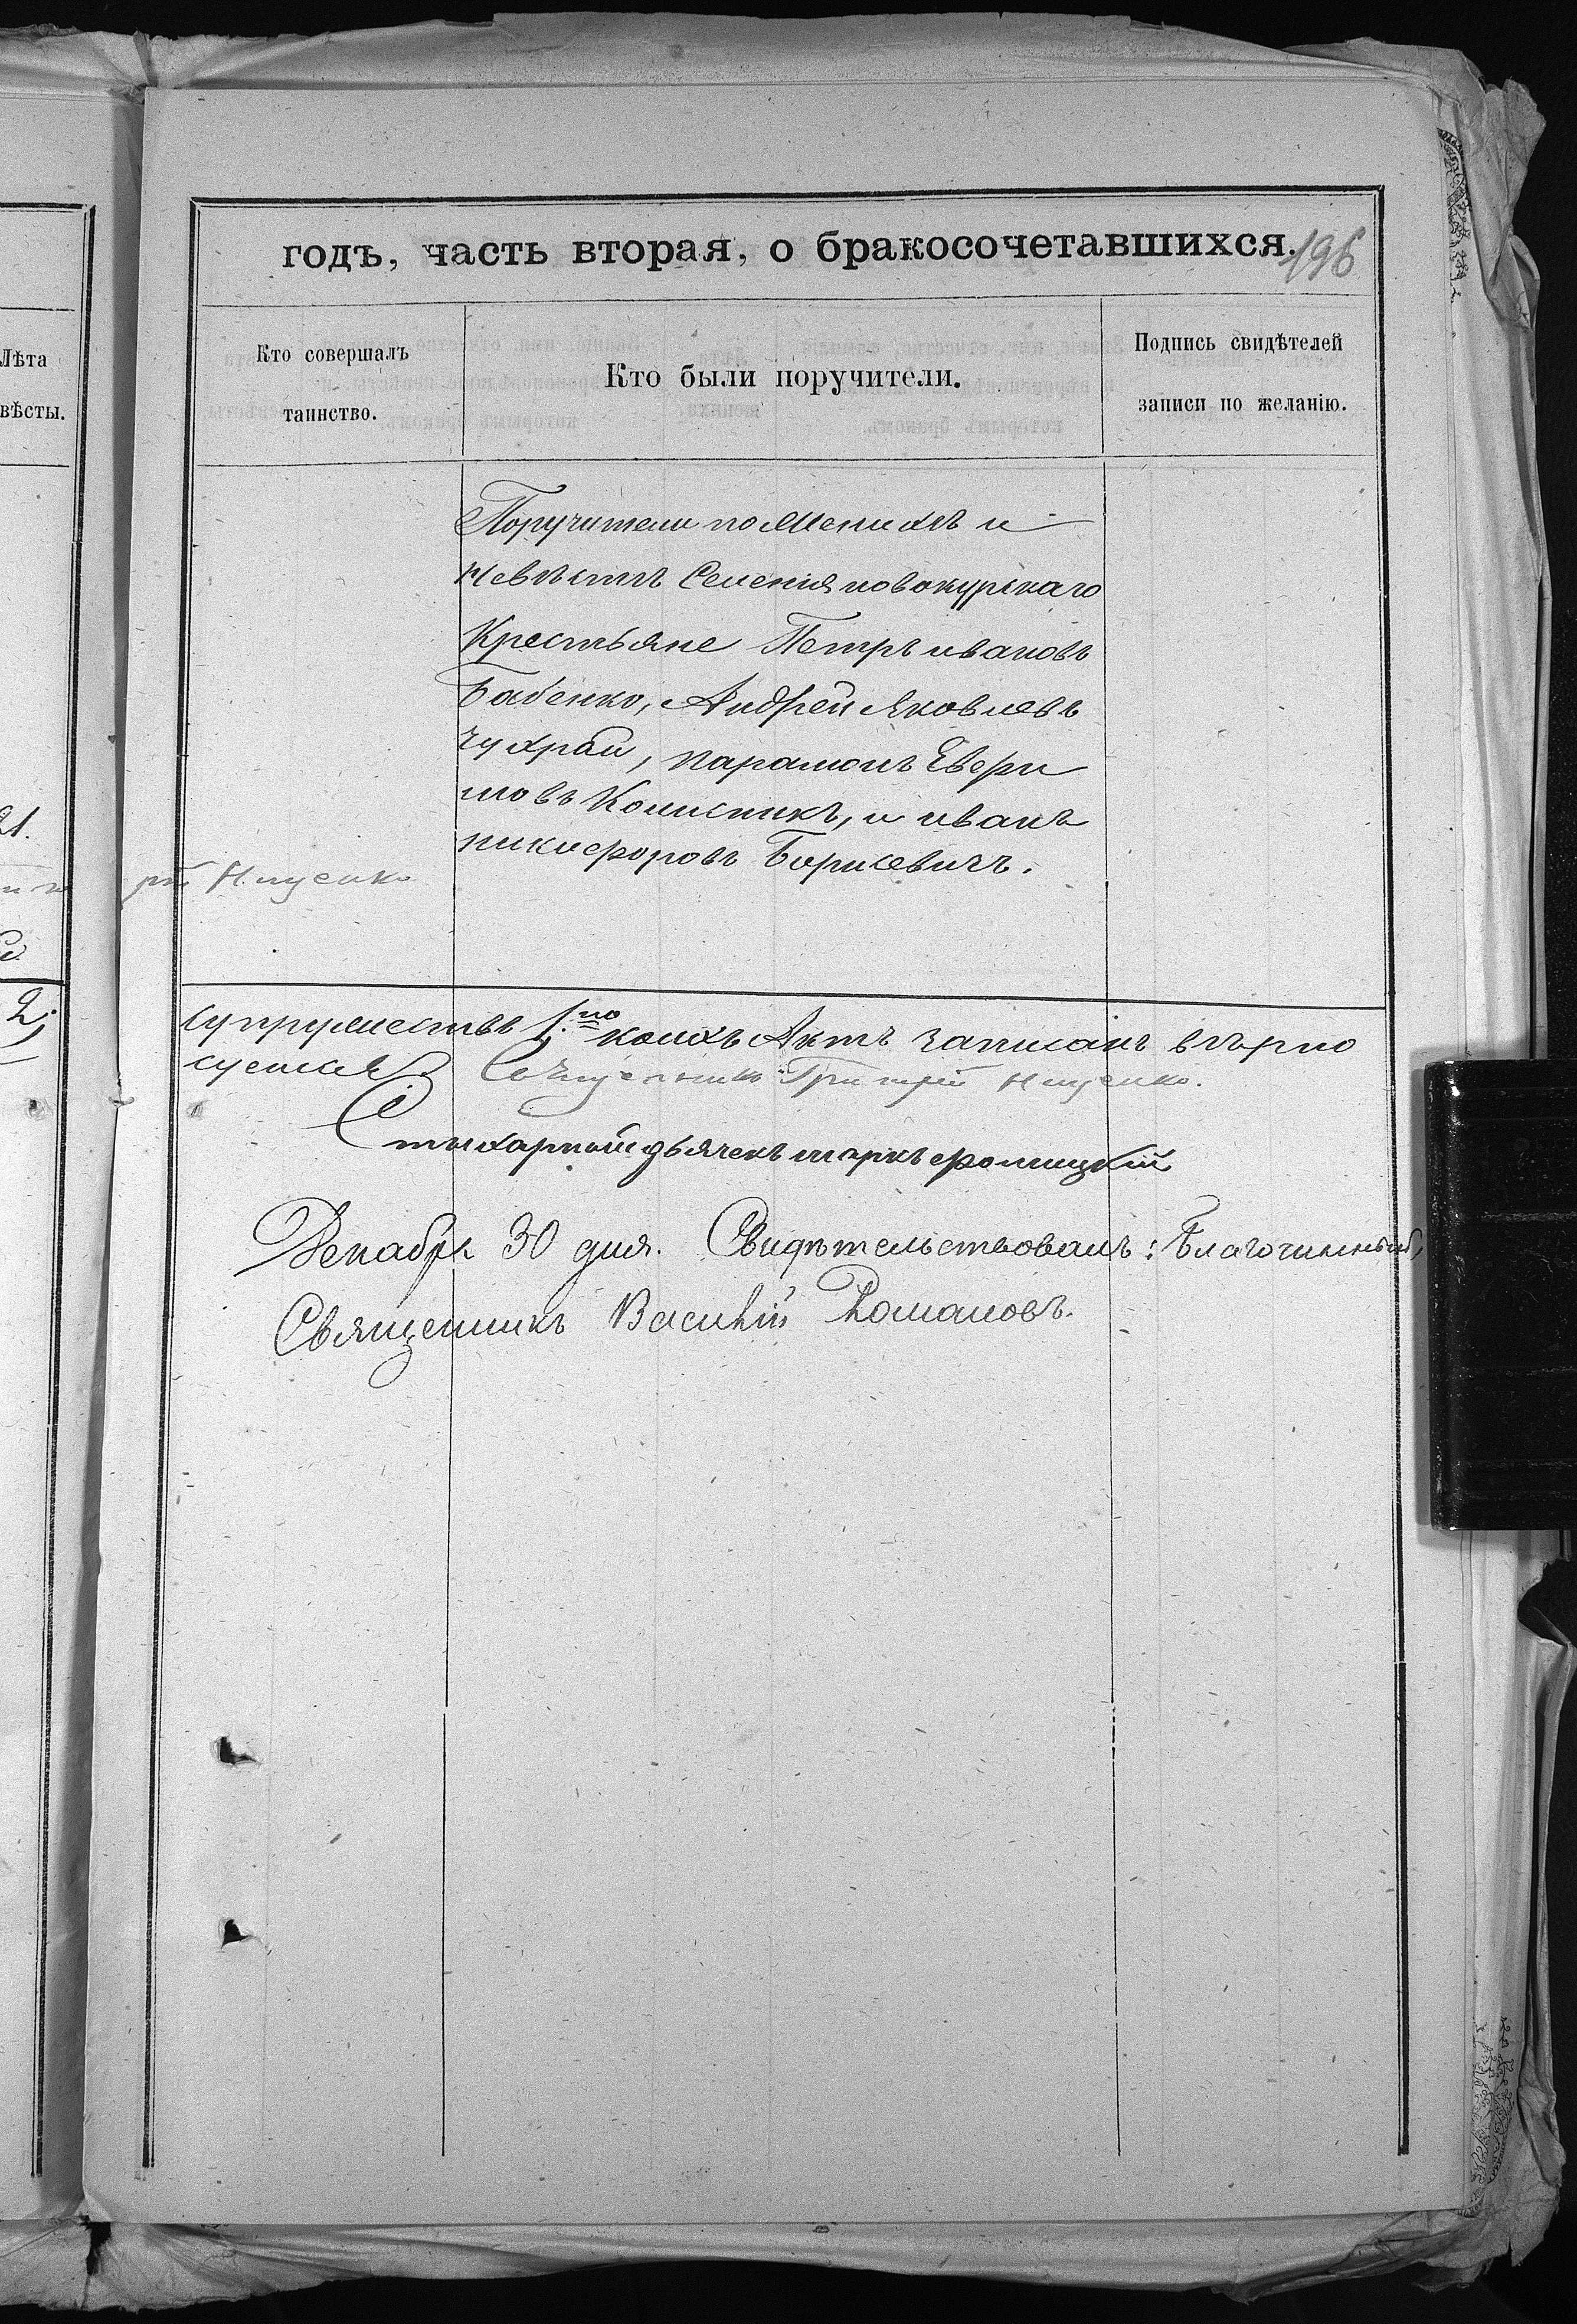 годъ, часть вторая, о бракосочетавшихся.
196
Лѣта
вѣсты.
Кто совершалъ
таинство.
Кто были поручители.
Подпись свидѣтелей
записи по желанію.
Поручители по женихѣ и
Невѣстѣ Селенія новокурскаго
Крестьяне Петръ ивановъ
Бабенко, Андрей Яковлевъ
Чухрай, парамонъ Евфи
мовъ Колисникъ, и иванъ
никифоровъ Борисевичъ.
21.
рій Ищенко
2;
супружествѣ 1.
коихъ Актъ записанъ вѣрно
Григорій Ищенко.
Стихарный дьячекъ маркъ фомицкій
Декабрь 30 дня. Свидѣтельствовалъ: Благочинный,
Священникъ Василій Романовъ.